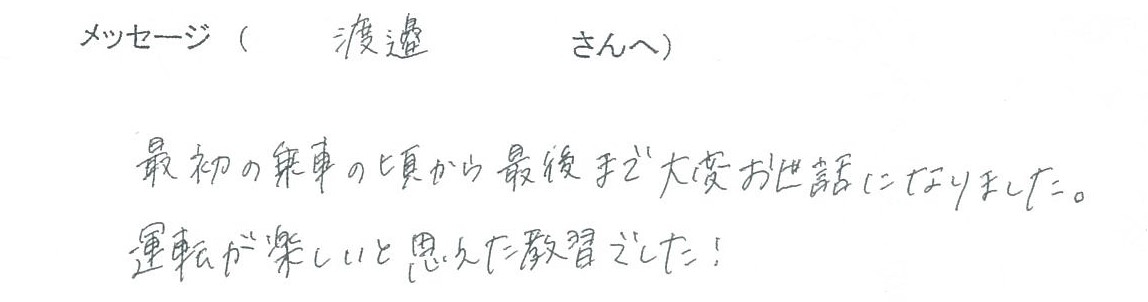 メッセージ（ 渡邉 さんへ）
最初の乗車の頃から最後まで大変お世話になりました。
運転が楽しいと思えた教習でした！